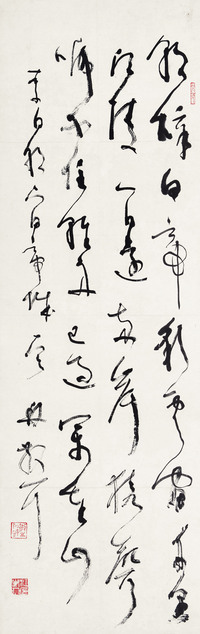 朝辞白帝彩云间千里
江陵一日还两岸猿声
啼不住轻舟已过万重山
李白朝下白帝城一首 林散耳